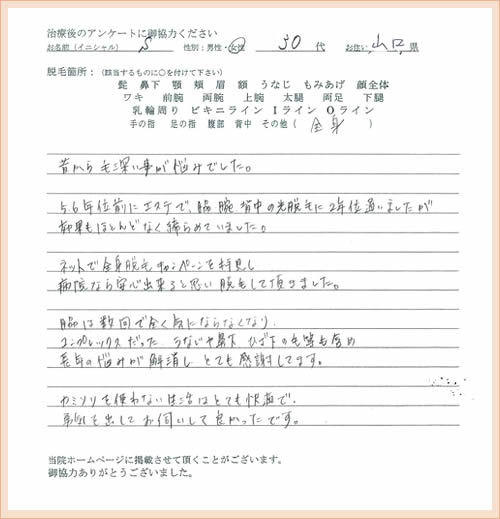 治療後のアンケートに御協力ください
お名前(イニシャル) S 性別:男性・女性 30代 お住い 山口 県
脱毛箇所:(該当するものに○を付けて下さい)
髭 鼻下 顎 頬 眉 額 うなじ もみあげ 顔全体
ワキ 前腕 両腕 上腕 太腿 両足 下腿
乳輪周り ビキニライン Iライン Oライン
手の指 足の指 腹部 背中 その他( 全身 )
昔から毛深い事が悩みでした。
5 6年位前にエステで、脇 腕 背中の光脱毛に2年位通いましたが
効果もほとんどなく締らめていました。
ネットで全身脱毛キャンペーンを拝見し
病院なら安心出来ると思い脱毛して頂きました。
脇は数回で全く気にならなくなり、
コンプレックスだった うなじや鼻下 ひざ下の毛等も含め
長年の悩みが解消し とても感謝してます。
カミソリを使わない生活はとても快適で、
勇気を出して お伺いして良かったです。
当院ホームページに掲載させて頂くことがございます。
御協力ありがとうございました。